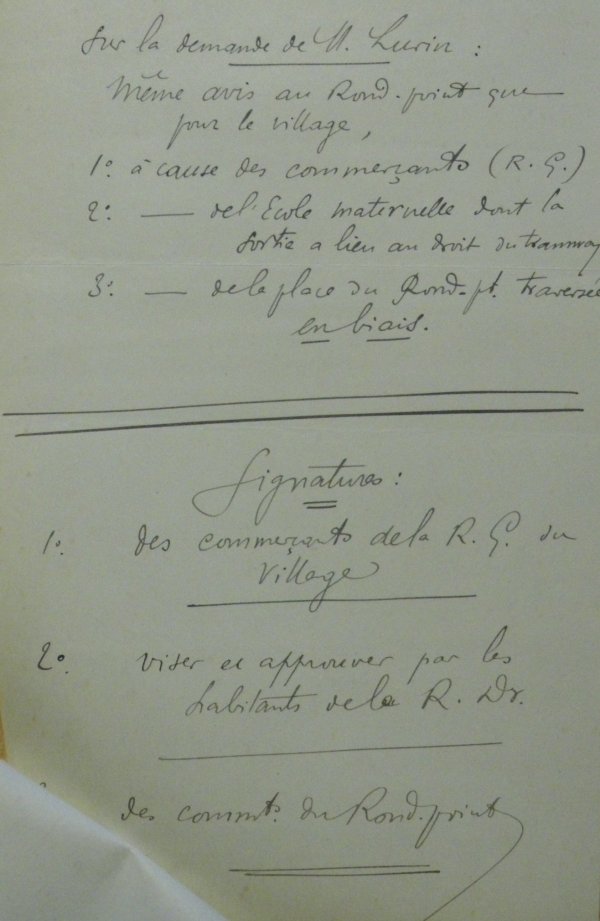 sur la demande de M. Lurin :
Même avis au Rond-point que
pour le village,
1º. à cause des commerçants (R. G.)
2º: — de l'Ecole maternelle dont la
sortie a lieu au droit du tramway
3º: — de la place du Rond-pt. traversée
en biais.
Signatures :
1º. des commerçants de la R. G. du
Village
2º. viser et approuver par les
habitants de la R. Dr.
des commts. du Rond-point